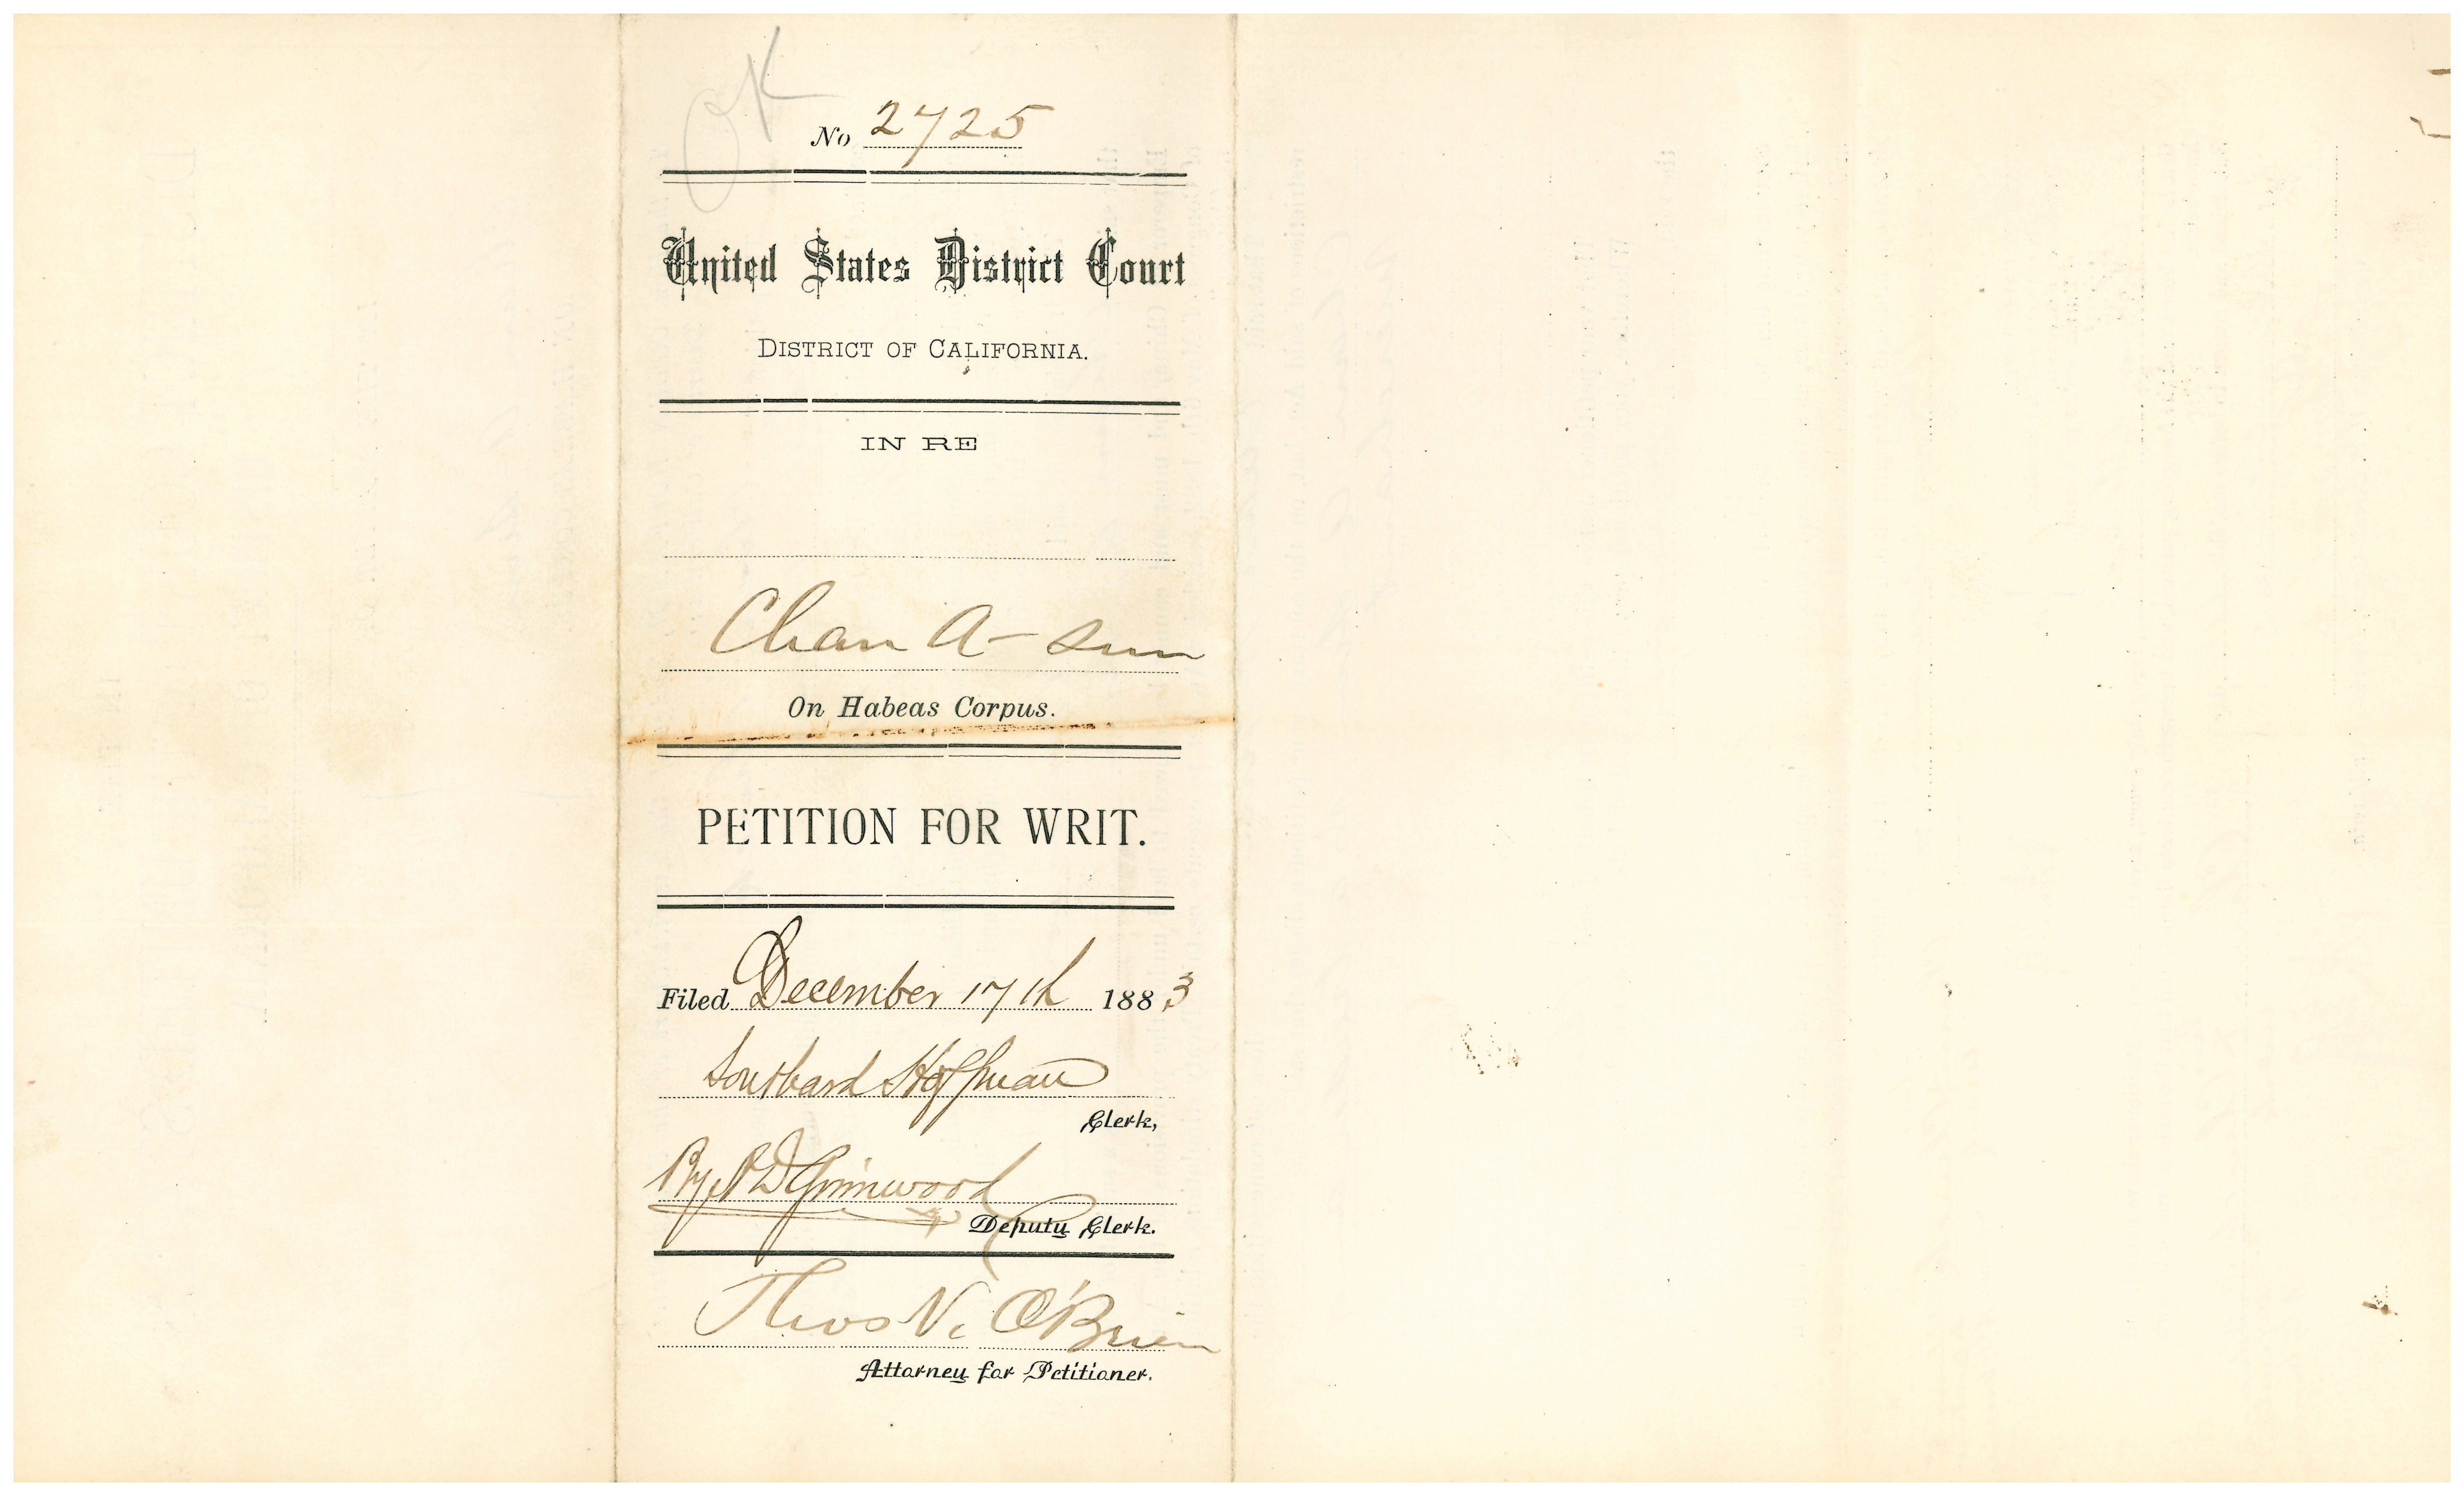 OK
No 2725
United States District Court
DISTRICT OF CALIFORNIA.
IN RE
Chan A-Sun
On Habeas Corpus.
PETITION FOR WRIT.
Filed December 17th 1883
Southard Hoffman
Clerk,
By Grimwood
Deputy Clerk.
Thos V. O'Brien
Attorney for Petitioner.